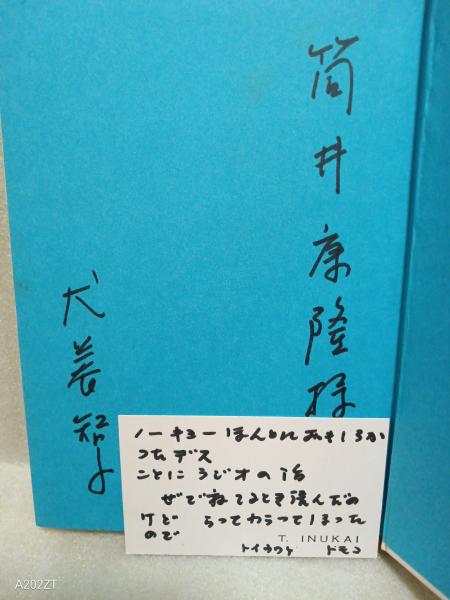 筒井康隆様
犬養智子
ノーキョーほんとにおもしろか
ったデス
ことにラジオの
ぜでねてるとき読んだの
けど わらってしまった
ので
T. INUKAI
トモコ
A202ZT